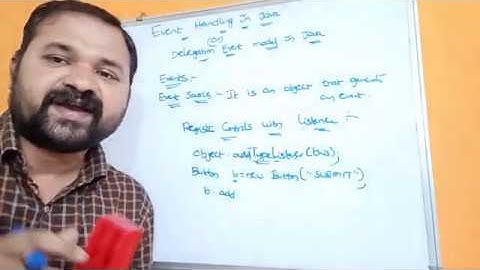 Event Handling In Java
(or)
Delegation Event model In Java
Events:-
Event Source - It is an object that generates
an event.
Register Controls with listener :-
object.addTypeListener(this);
Button b=new Button("SUBMIT")
b.add